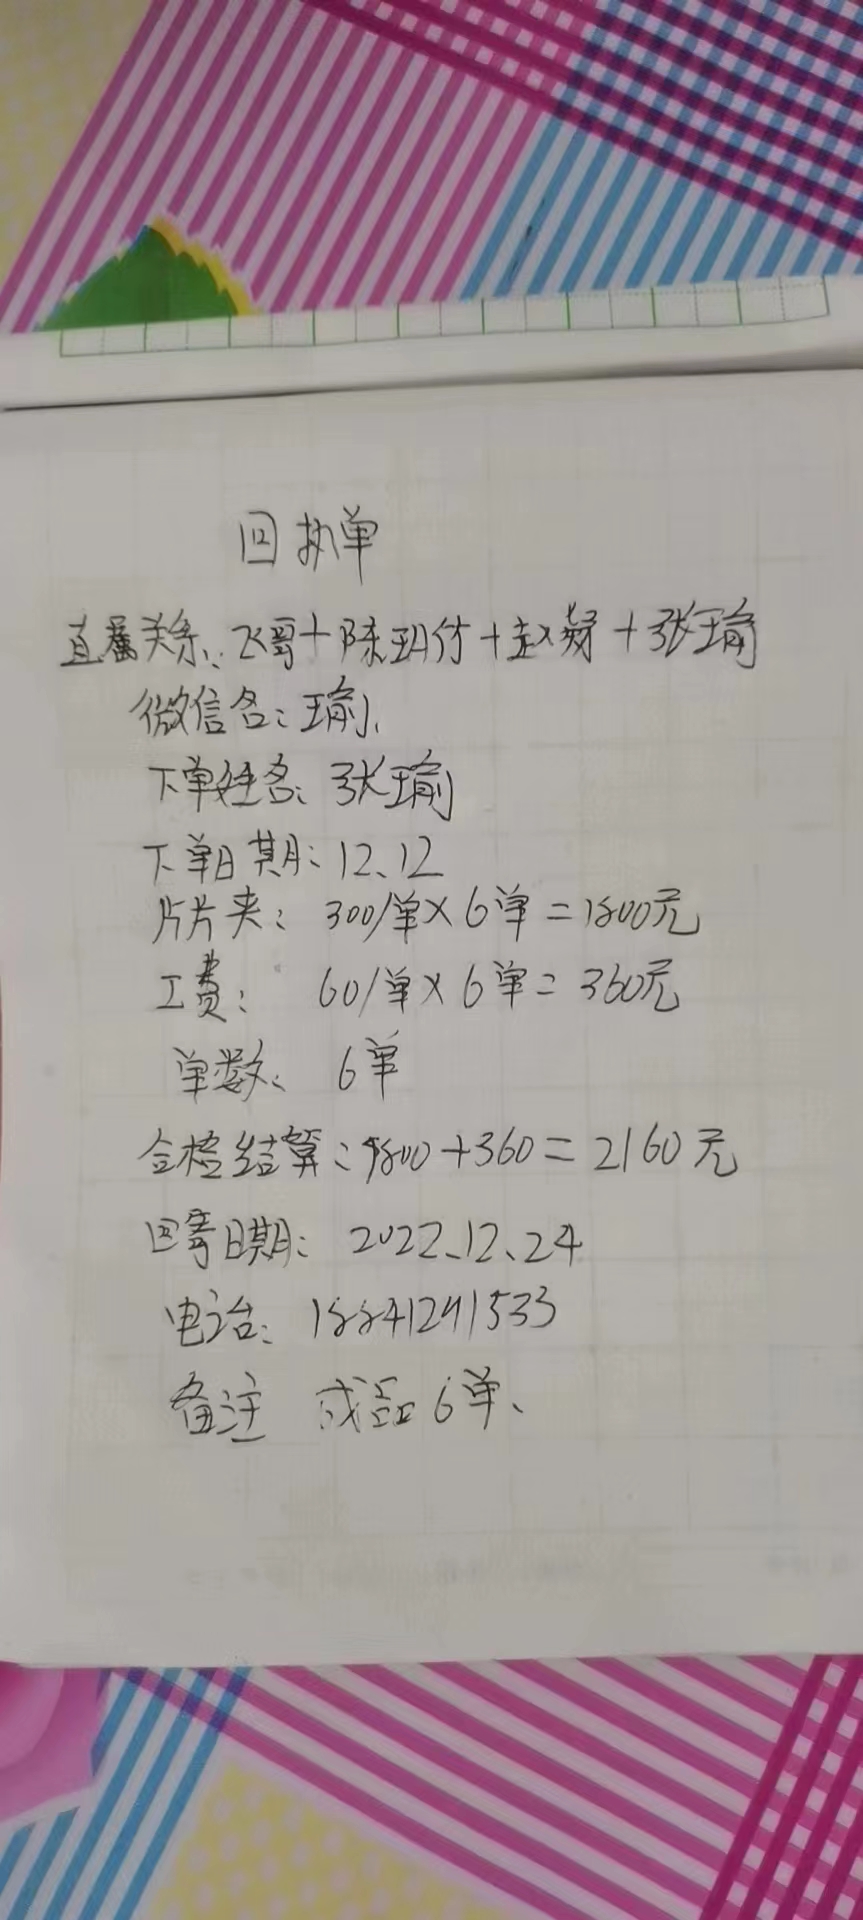 回执单
直属关系:飞哥+陈玥竹+赵凝+张瑜
微信名:瑜、
下单姓名:张瑜
下单日期:12、12
片片夹:300/单×6单=1800元
工费:60/单×6单=360元
单数:6单
合格结算:1800+360=2160元
回寄日期:2022、12、24
电话:18841241533
备注 成品6单、